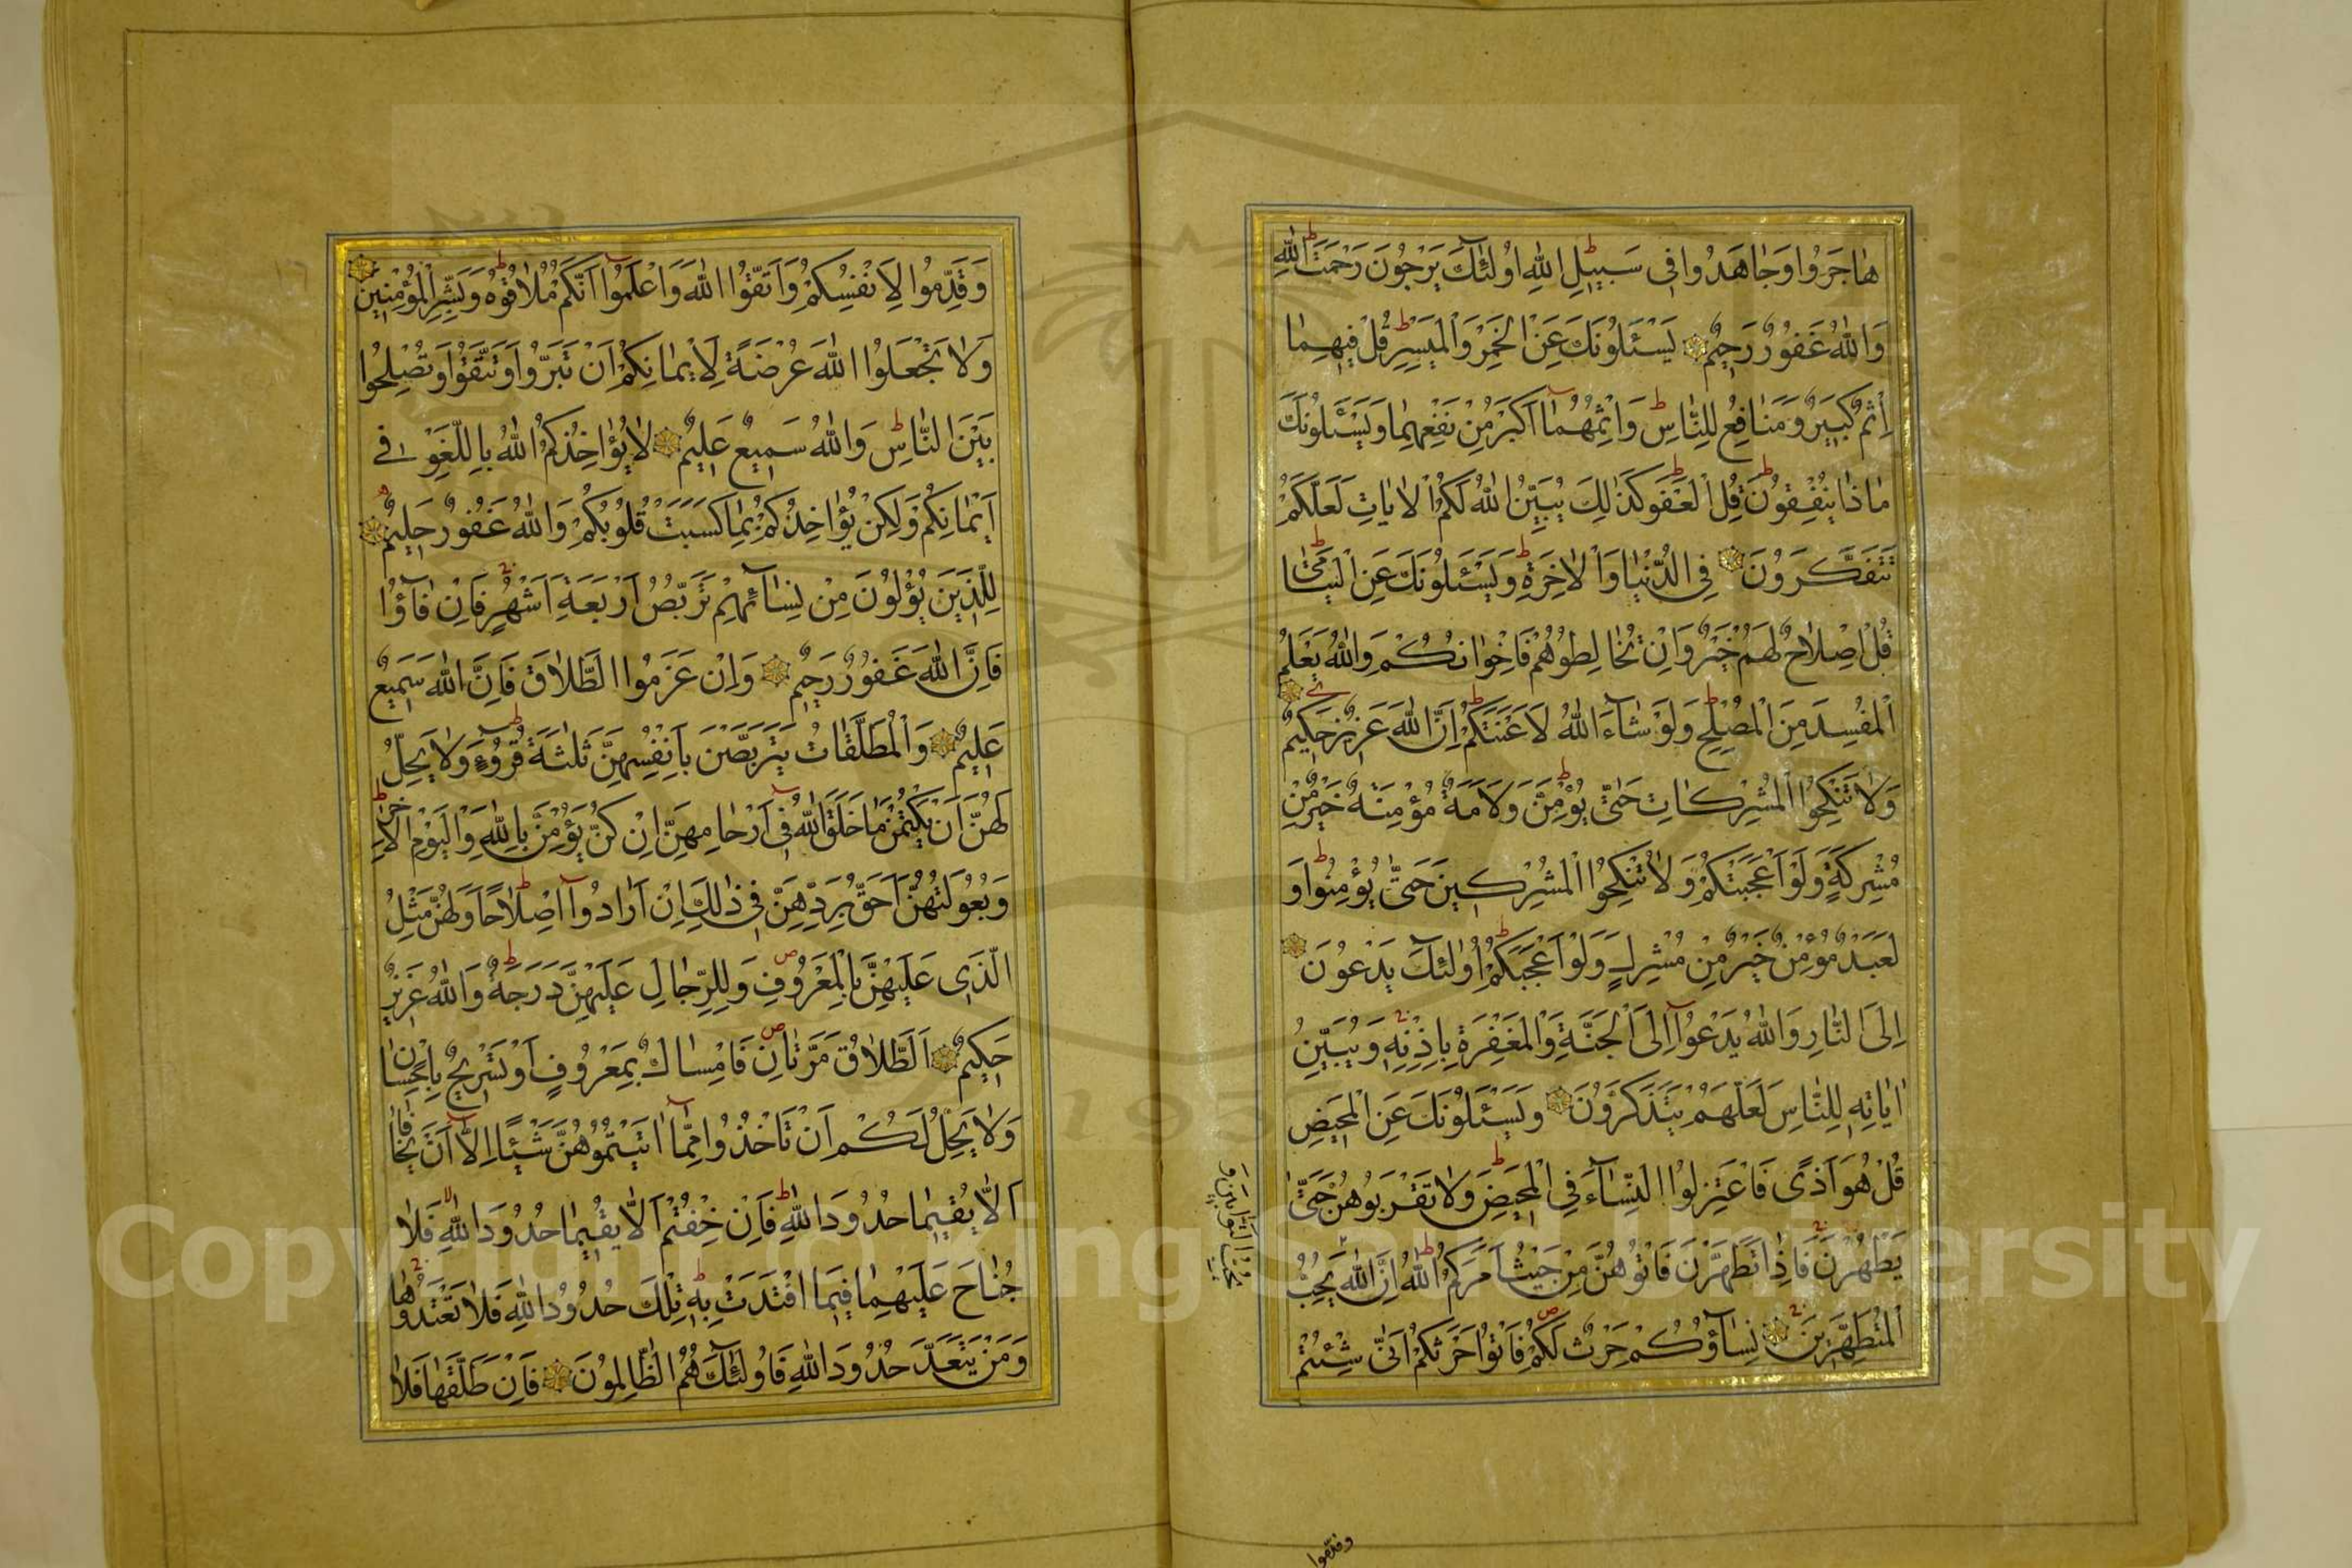 هَاجَرُوا وَجَاهَدُوا فِي سَبِيلِ اللَّهِ اُولٰئِكَ يَرْجُونَ رَحْمَتَ اللَّهِ
وَاللَّهُ غَفُورٌ رَحِيمٌ يَسْئَلُونَكَ عَنِ الْخَمْرِ وَالْمَيْسِرِ قُلْ فِيهِمَا
اِثْمٌ كَبِيرٌ وَمَنَافِعُ لِلنَّاسِ وَاِثْمُهُمَا اَكْبَرُ مِنْ نَفْعِهِمَا وَيَسْئَلُونَكَ
مَاذَا يُنْفِقُونَ قُلِ الْعَفْوَ كَذَالِكَ يُبَيِّنُ اللَّهُ لَكُمُ الْاٰيَاتِ لَعَلَّكُمْ
تَتَفَكَّرُونَ فِي الدُّنْيَا وَالْاٰخِرَةِ وَيَسْئَلُونَكَ عَنِ الْيَتَامٰى
قُلْ اِصْلَاحٌ لَهُمْ خَيْرٌ وَاِنْ تُخَالِطُوهُمْ فَاِخْوَانُكُمْ وَاللَّهُ يَعْلَمُ
الْمُفْسِدَ مِنَ الْمُصْلِحِ وَلَوْ شَاءَ اللَّهُ لَاَعْنَتَكُمْ اِنَّ اللَّهَ عَزِيزٌ حَكِيمٌ
وَلَا تَنْكِحُوا الْمُشْرِكَاتِ حَتّٰى يُؤْمِنَّ وَلَاَمَةٌ مُؤْمِنَةٌ خَيْرٌ مِنْ
مُشْرِكَةٍ وَلَوْ اَعْجَبَتْكُمْ وَلَا تُنْكِحُوا الْمُشْرِكِينَ حَتّٰى يُؤْمِنُوا وَ
لَعَبْدٌ مُؤْمِنٌ خَيْرٌ مِنْ مُشْرِكٍ وَلَوْ اَعْجَبَكُمْ اُولٰئِكَ يَدْعُونَ
اِلَى النَّارِ وَاللَّهُ يَدْعُوا اِلَى الْجَنَّةِ وَالْمَغْفِرَةِ بِاِذْنِهِ وَيُبَيِّنُ
اٰيَاتِهِ لِلنَّاسِ لَعَلَّهُمْ يَتَذَكَّرُونَ وَيَسْئَلُونَكَ عَنِ الْمَحِيضِ
قُلْ هُوَ اَذًى فَاعْتَزِلُوا النِّسَاءَ فِي الْمَحِيضِ وَلَا تَقْرَبُوهُنَّ حَتّٰى
يَطْهُرْنَ فَاِذَا تَطَهَّرْنَ فَاْتُوهُنَّ مِنْ حَيْثُ اَمَرَكُمُ اللَّهُ اِنَّ اللَّهَ يُحِبُّ
الْمُتَطَهِّرِينَ نِسَاؤُكُمْ حَرْثٌ لَكُمْ فَاْتُوا حَرْثَكُمْ اَنّٰى شِئْتُمْ
التَّوَّابِينَ وَ
يُحِبُّ
وقدموا
وَقَدِّمُوا لِاَنْفُسِكُمْ وَاتَّقُوا اللَّهَ وَاعْلَمُوا اَنَّكُمْ مُلَاقُوهُ وَبَشِّرِ الْمُؤْمِنِينَ
وَلَا تَجْعَلُوا اللَّهَ عُرْضَةً لِاَيْمَانِكُمْ اَنْ تَبَرُّوا وَتَتَّقُوا وَتُصْلِحُوا
بَيْنَ النَّاسِ وَاللَّهُ سَمِيعٌ عَلِيمٌ لَا يُؤَاخِذُكُمُ اللَّهُ بِاللَّغْوِ فِي
اَيْمَانِكُمْ وَلٰكِنْ يُؤَاخِذُكُمْ بِمَا كَسَبَتْ قُلُوبُكُمْ وَاللَّهُ غَفُورٌ حَلِيمٌ
لِلَّذِينَ يُؤْلُونَ مِنْ نِسَائِهِمْ تَرَبُّصُ اَرْبَعَةِ اَشْهُرٍ فَاِنْ فَاؤُا
فَاِنَّ اللَّهَ غَفُورٌ رَحِيمٌ وَاِنْ عَزَمُوا الطَّلَاقَ فَاِنَّ اللَّهَ سَمِيعٌ
عَلِيمٌ وَالْمُطَلَّقَاتُ يَتَرَبَّصْنَ بِاَنْفُسِهِنَّ ثَلٰثَةَ قُرُوءٍ وَلَا يَحِلُّ
لَهُنَّ اَنْ يَكْتُمْنَ مَا خَلَقَ اللَّهُ فِي اَرْحَامِهِنَّ اِنْ كُنَّ يُؤْمِنَّ بِاللَّهِ وَالْيَوْمِ الْاٰخِرِ
وَبُعُولَتُهُنَّ اَحَقُّ بِرَدِّهِنَّ فِي ذٰلِكَ اِنْ اَرَادُوا اِصْلَاحًا وَلَهُنَّ مِثْلُ
الَّذِي عَلَيْهِنَّ بِالْمَعْرُوفِ وَلِلرِّجَالِ عَلَيْهِنَّ دَرَجَةٌ وَاللَّهُ عَزِيزٌ
حَكِيمٌ اَلطَّلَاقُ مَرَّتَانِ فَاِمْسَاكٌ بِمَعْرُوفٍ اَوْ تَسْرِيحٌ بِاِحْسَانٍ
وَلَا يَحِلُّ لَكُمْ اَنْ تَاْخُذُوا مِمَّا اٰتَيْتُمُوهُنَّ شَيْئًا اِلَّا اَنْ يَخَافَا
اَلَّا يُقِيمَا حُدُودَ اللَّهِ فَاِنْ خِفْتُمْ اَلَّا يُقِيمَا حُدُودَ اللَّهِ فَلَا
جُنَاحَ عَلَيْهِمَا فِيمَا افْتَدَتْ بِهِ تِلْكَ حُدُودُ اللَّهِ فَلَا تَعْتَدُوهَا
وَمَنْ يَتَعَدَّ حُدُودَ اللَّهِ فَاُولٰئِكَ هُمُ الظَّالِمُونَ فَاِنْ طَلَّقَهَا فَلَا
Copyright © King Saud University
1957